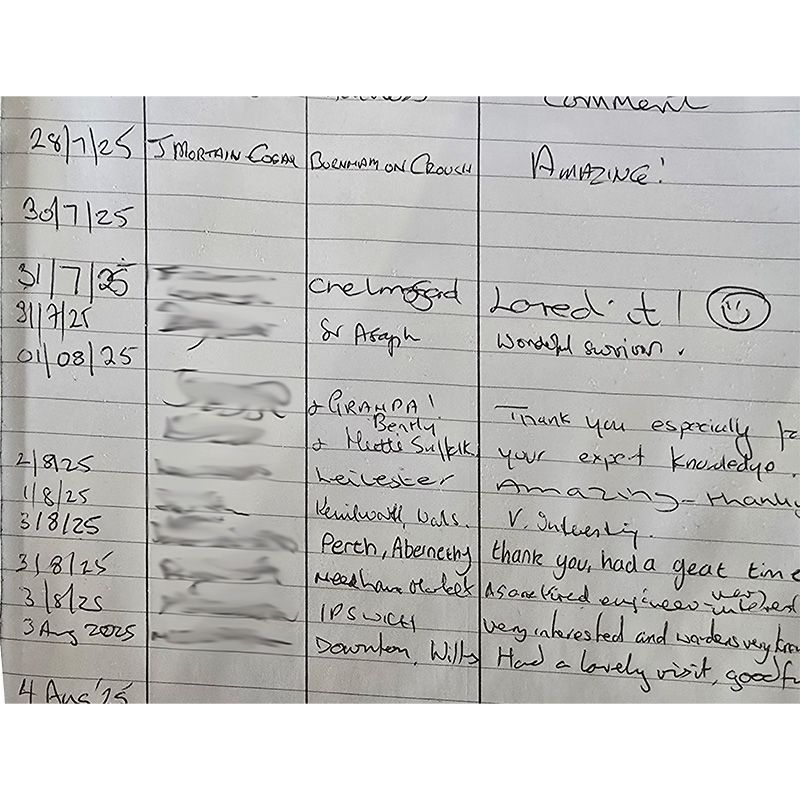 Comment
28/7/25 J MORTAIN COGAR BURNHAM ON CROUCH AMAZING!
30/7/25
31/7/25 Chelmsford Loved it!
31/7/25 St Asaph Wonderful
01/08/25
& GRAMPA! Thank you especially
Bently
& Suffolk your expert knowledge.
2/8/25 Leicester Amazing - thank
1/8/25 Kenilworth, V.
3/8/25 Perth, Abernethy thank you, had a geat time
3/8/25 Needham Market As a retired engineer very
3/8/25 IPSWICH very interested and wardens very
3 Aug 2025 Downton, Wilts Had a lovely visit, good
4 Aug '25